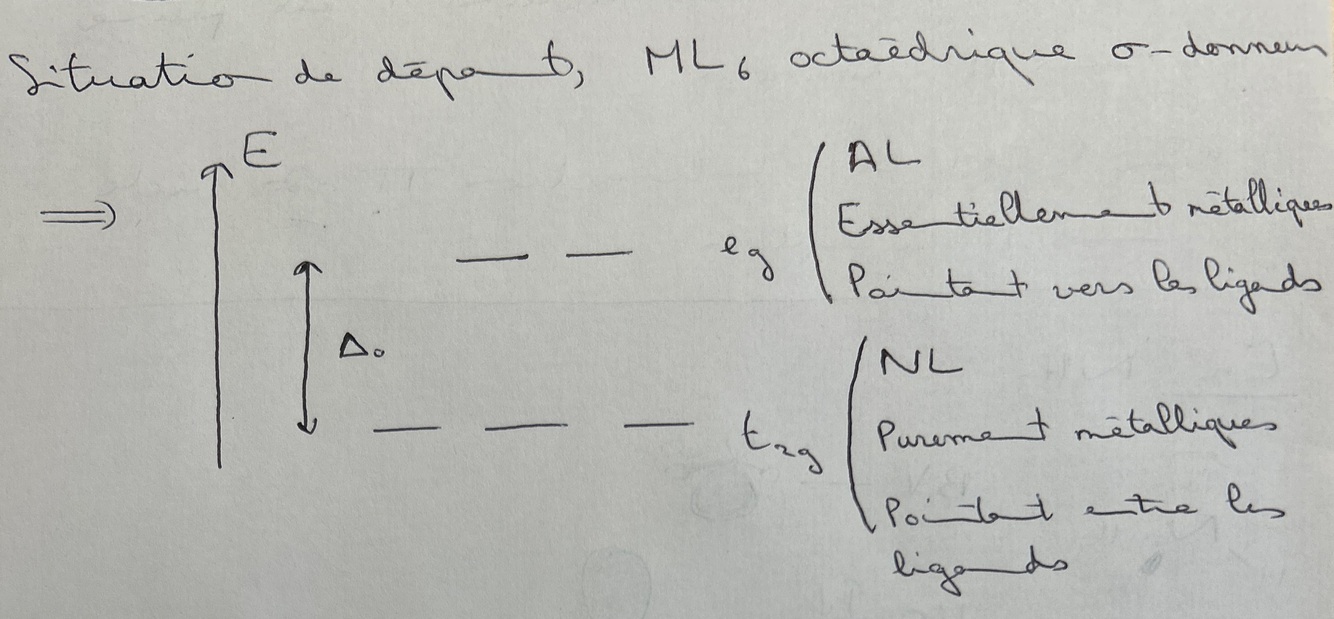 Situation de départ, ML₆ octaédrique σ-donneur
⟹ E
AL
Essentiellement métalliques
eg
Pointant vers les ligands
Δ₀
NL
t₂g
Purement métalliques
Pointant entre les
ligands